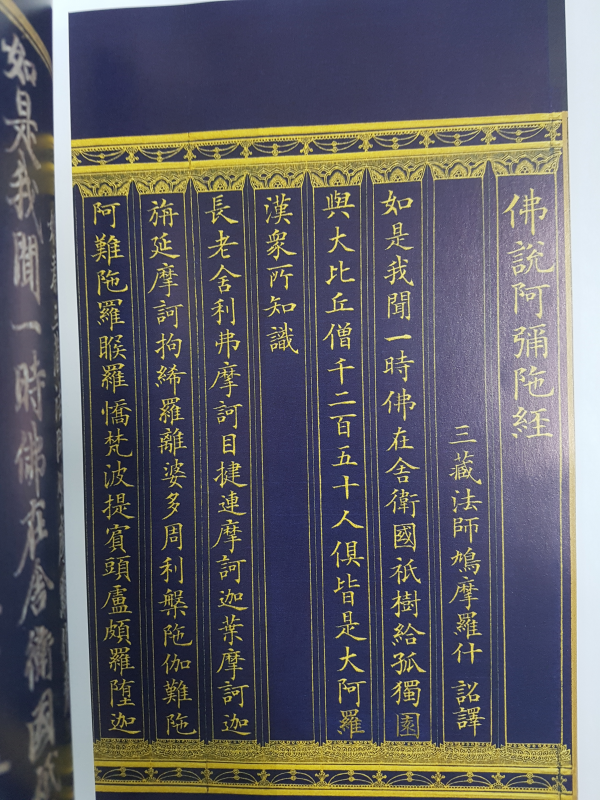 佛說阿彌陁経
三藏法師鳩摩羅什 詔譯
如是我聞一時佛在舍衛國祇樹給孤獨園
與大比丘僧千二百五十人俱皆是大阿羅
漢衆所知識
長老舍利弗摩訶目揵連摩訶迦葉摩訶迦
旃延摩訶拘絺羅離婆多周利槃陁伽難陁
阿難陁羅睺羅憍梵波提賓頭盧頗羅墮迦
如是我聞一時佛在舍衛國